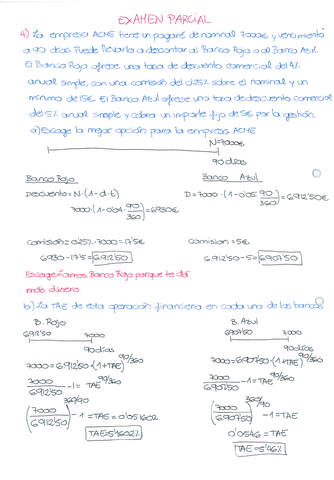 EXAMEN PARCIAL
4) La empresa ACME tiene un pagaré de nominal 7000€ y vencimiento
a 90 días. Puede llevarlo a descontar al Banco Rojo o al Banco Azul.
El Banco Rojo ofrece una tasa de descuento comercial del 4%
anual simple, con una comisión del 0'25% sobre el nominal y un
mínimo de 15€. El Banco Azul ofrece una tasa de descuento comercial
del 5% anual simple y cobra un importe fijo de 5€ por la gestión.
a) Escoge la mejor opción para la empresa ACME
N=7000€
90 días
Banco Rojo
Banco Azul
Descuento = N·(1-d·t)
D = 7000·(1-0'05·90/360) = 6.912'50€
7000·(1-0'04·90/360) = 6930€
Comisión = 0'25%·7000 = 17'5€
Comisión = 5€
6.930-17'5 = 6.912'50
6.912'50-5 = 6.907'50
Escogeríamos Banco Rojo porque te da
más dinero
b) La TAE de esta operación financiera en cada uno de los bancos
B. Rojo
B. Azul
6.912'50 7000
6.907'50 7000
90 días
90 días
7000 = 6.912'50·(1+TAE)^90/360
7000 = 6.907'50·(1+TAE)^90/360
7000/6.912'50 -1 = TAE^90/360
7000/6.907'50 -1 = TAE^90/360
(7000/6.912'50)^360/90 -1 = TAE = 0'051602
(7000/6.907'50)^360/90 -1 = TAE
TAE = 5'1602%
0'0546 = TAE
TAE = 5'46%